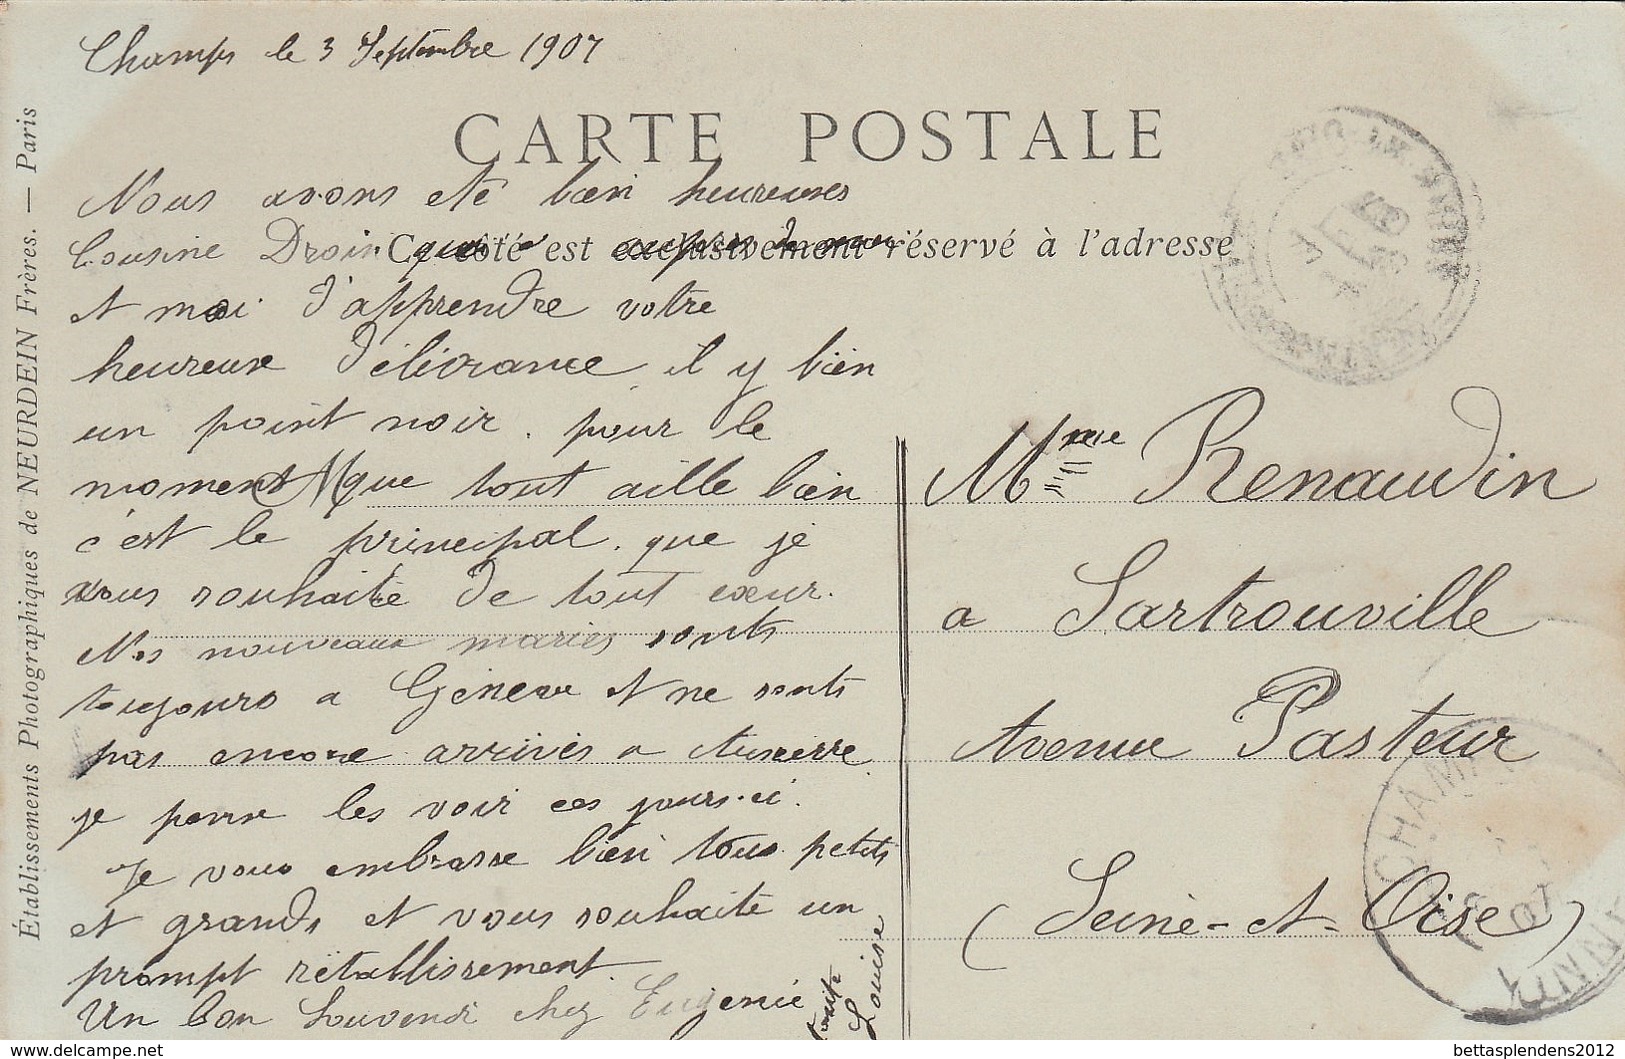 Champs le 3 Septembre 1907
CARTE POSTALE
Nous avons eté bien heureuses
Cousine Droin
Ce côté est exclusivement réservé à l'adresse
et moi d'apprendre votre
heureuse délivrance il y bien
un point noir. pour le
moment que tout aille bien
c'est le principal. que je
vous souhaite de tout cœur.
Nos nouveaux mariés sonts
toujours a Génève et ne sonts
pas encore arrivés a Auxerre
je pense les voir ces jours-ci.
Je vous embrasse bien tous petits
et grands et vous souhaite un
prompt rétablissement.
Un bon Souvenir chez Eugenie
Louise
Mme Renaudin
a Sartrouville
Avenue Pasteur
(Seine-et-Oise)
Établissements Photographiques de NEURDEIN Frères. — Paris
CHAMPS
07
YONNE
delcampe.net
bettasplendens2012